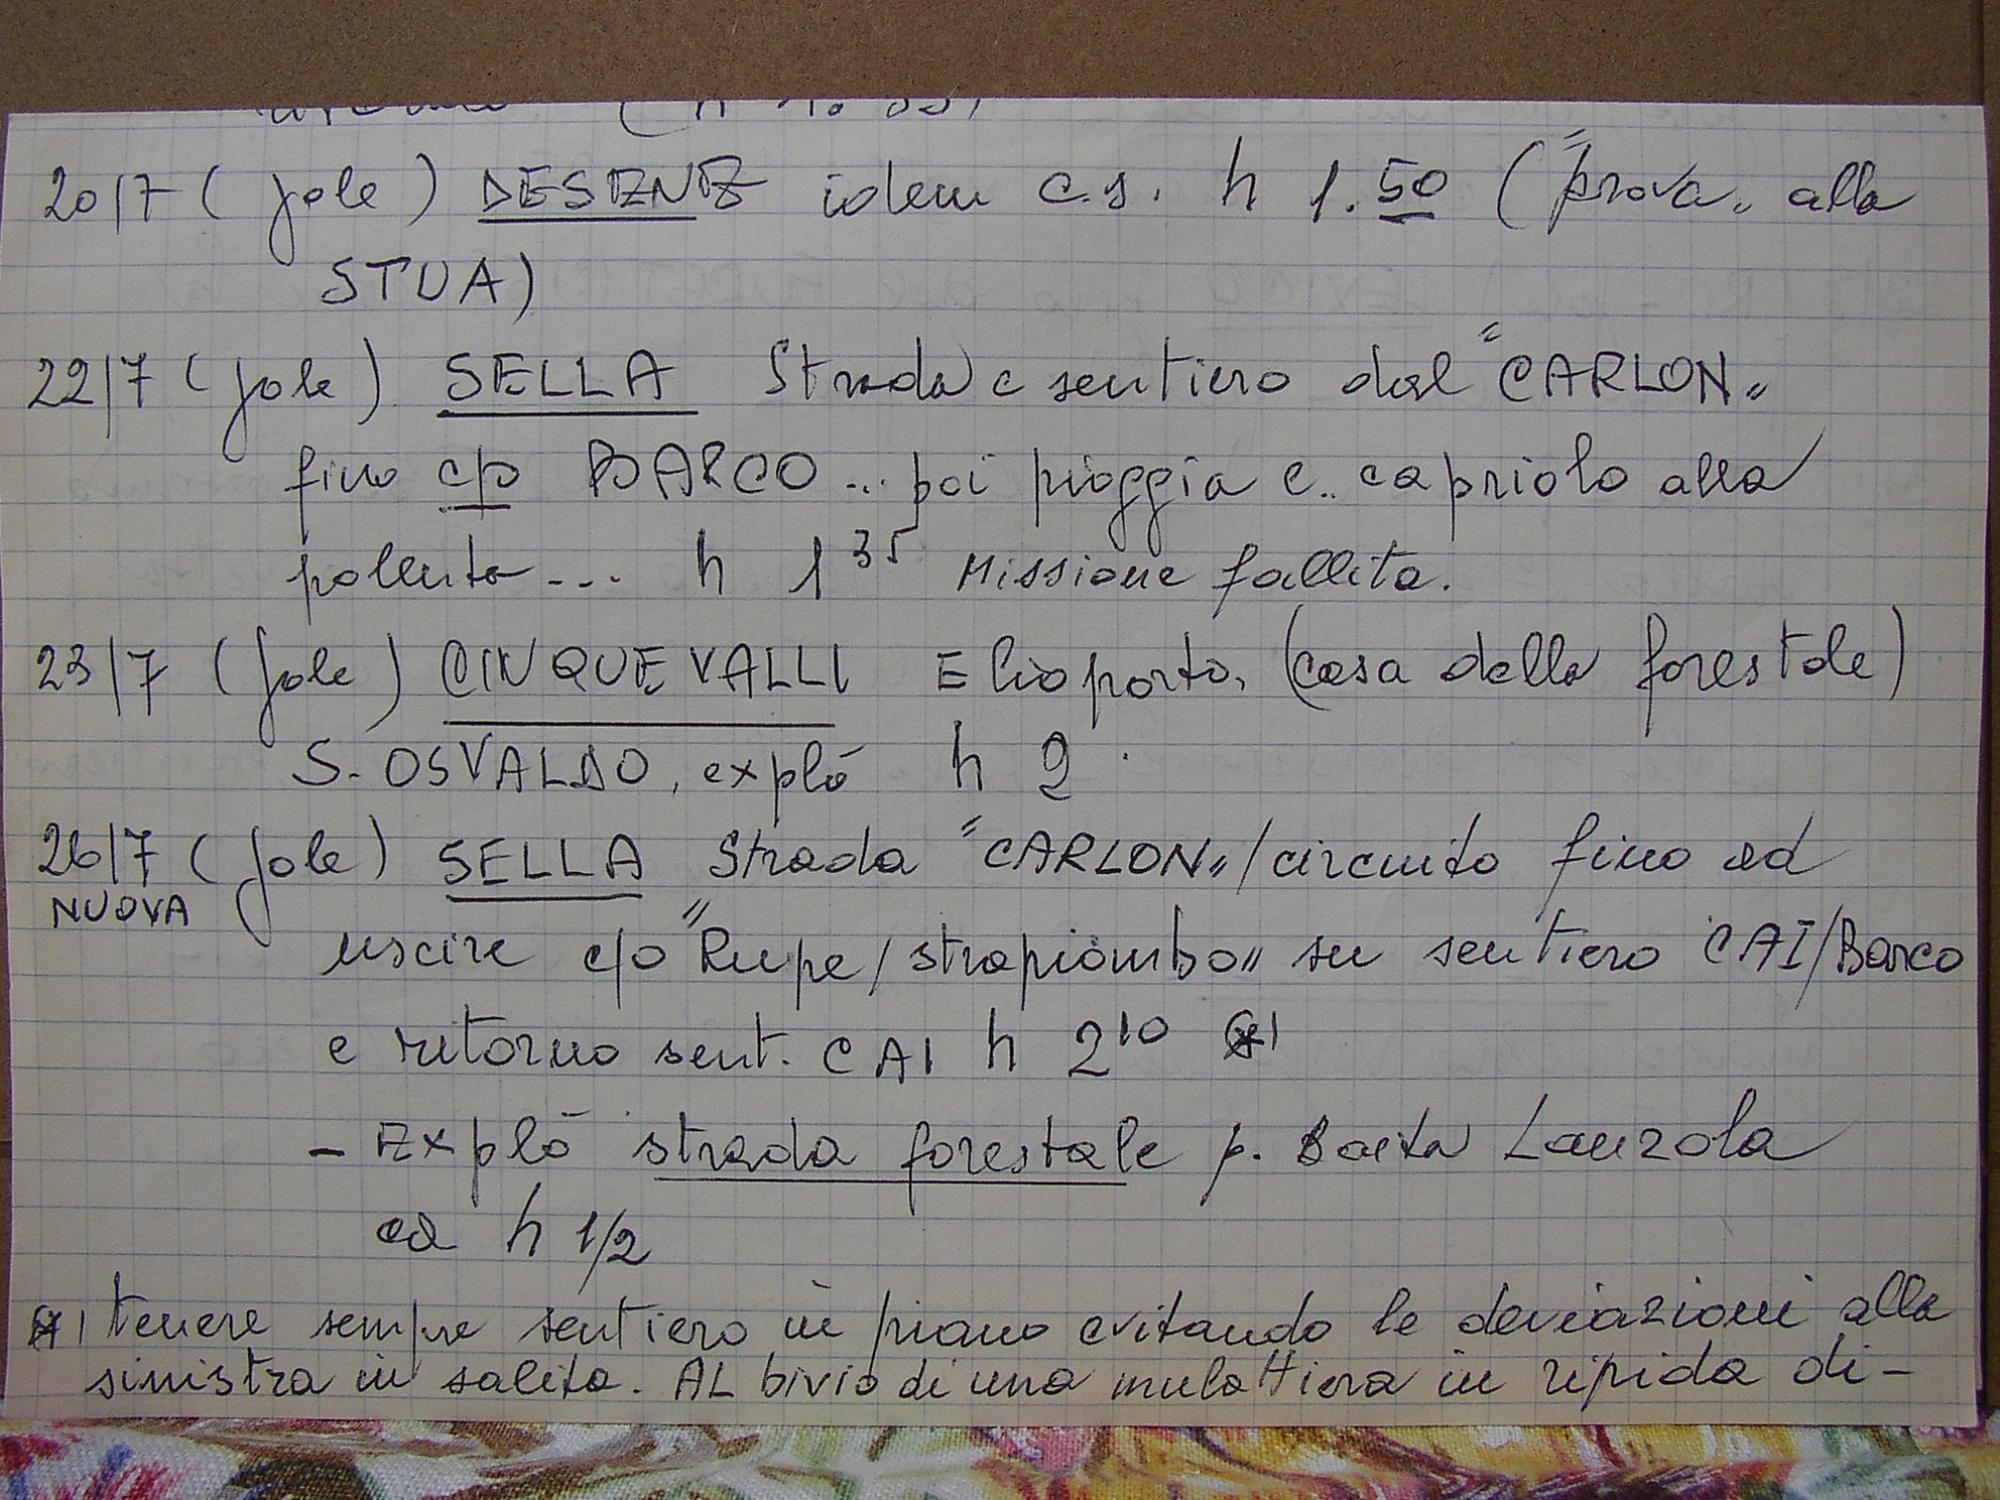 20/7 (Jole) DESENE idem c.s. h 1.50 ("prova" alla
STUA)
22/7 (Jole) SELLA Strada e sentiero dal "CARLON"
fino c/o BARCO ... poi pioggia e.. capriolo alla
polenta... h 1 35 Missione fallita.
23/7 (Jole) CINQUEVALLI Elioporto, (casa della forestale)
S. OSVALDO, explò h 2
26/7 (Jole) SELLA Strada "CARLON"/circuito fino ad
NUOVA
uscire c/o "Rupe/strapiombo" su sentiero CAI/Barco
e ritorno sent. CAI h 2 10 *1
- Explò strada forestale p. Baita Lanzola
ca h 1/2
*1 tenere sempre sentiero in piano evitando le deviazioni alla
sinistra in salita. AL bivio di una mulattiera in ripida di-